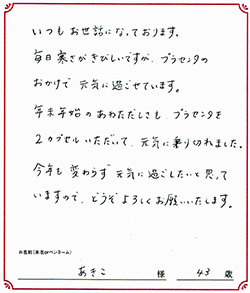 いつもお世話になっております。
毎日寒さがきびしいですが、プラセンタの
おかげで元気に過ごせています。
年末年始のあわただしさも、プラセンタを
2カプセルいただいて、元気に乗り切れました。
今年も変わらず元気に過ごしたいと思って
いますので、どうぞよろしくお願いいたします。
お名前(本名orペンネーム)
あきこ 様 43 歳